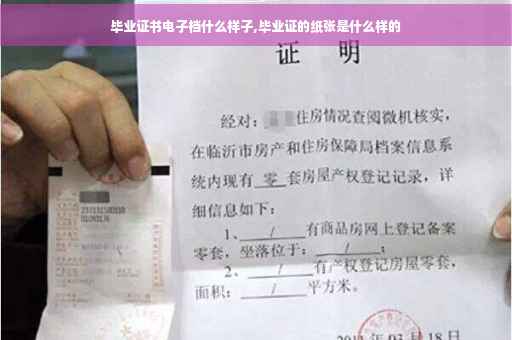 毕业证书电子档什么样子,毕业证的纸张是什么样的
证 明
经对: 住房情况查阅微机核实,
在临沂市房产和住房保障局档案信息系
统内现有 零 套房屋产权登记记录, 详
细信息如下:
1、 / 有商品房网上登记备案
零套, 坐落位于: / ;
2、 / 有产权登记房屋零套,
面积: / 平方米。
年 03 月 18 日